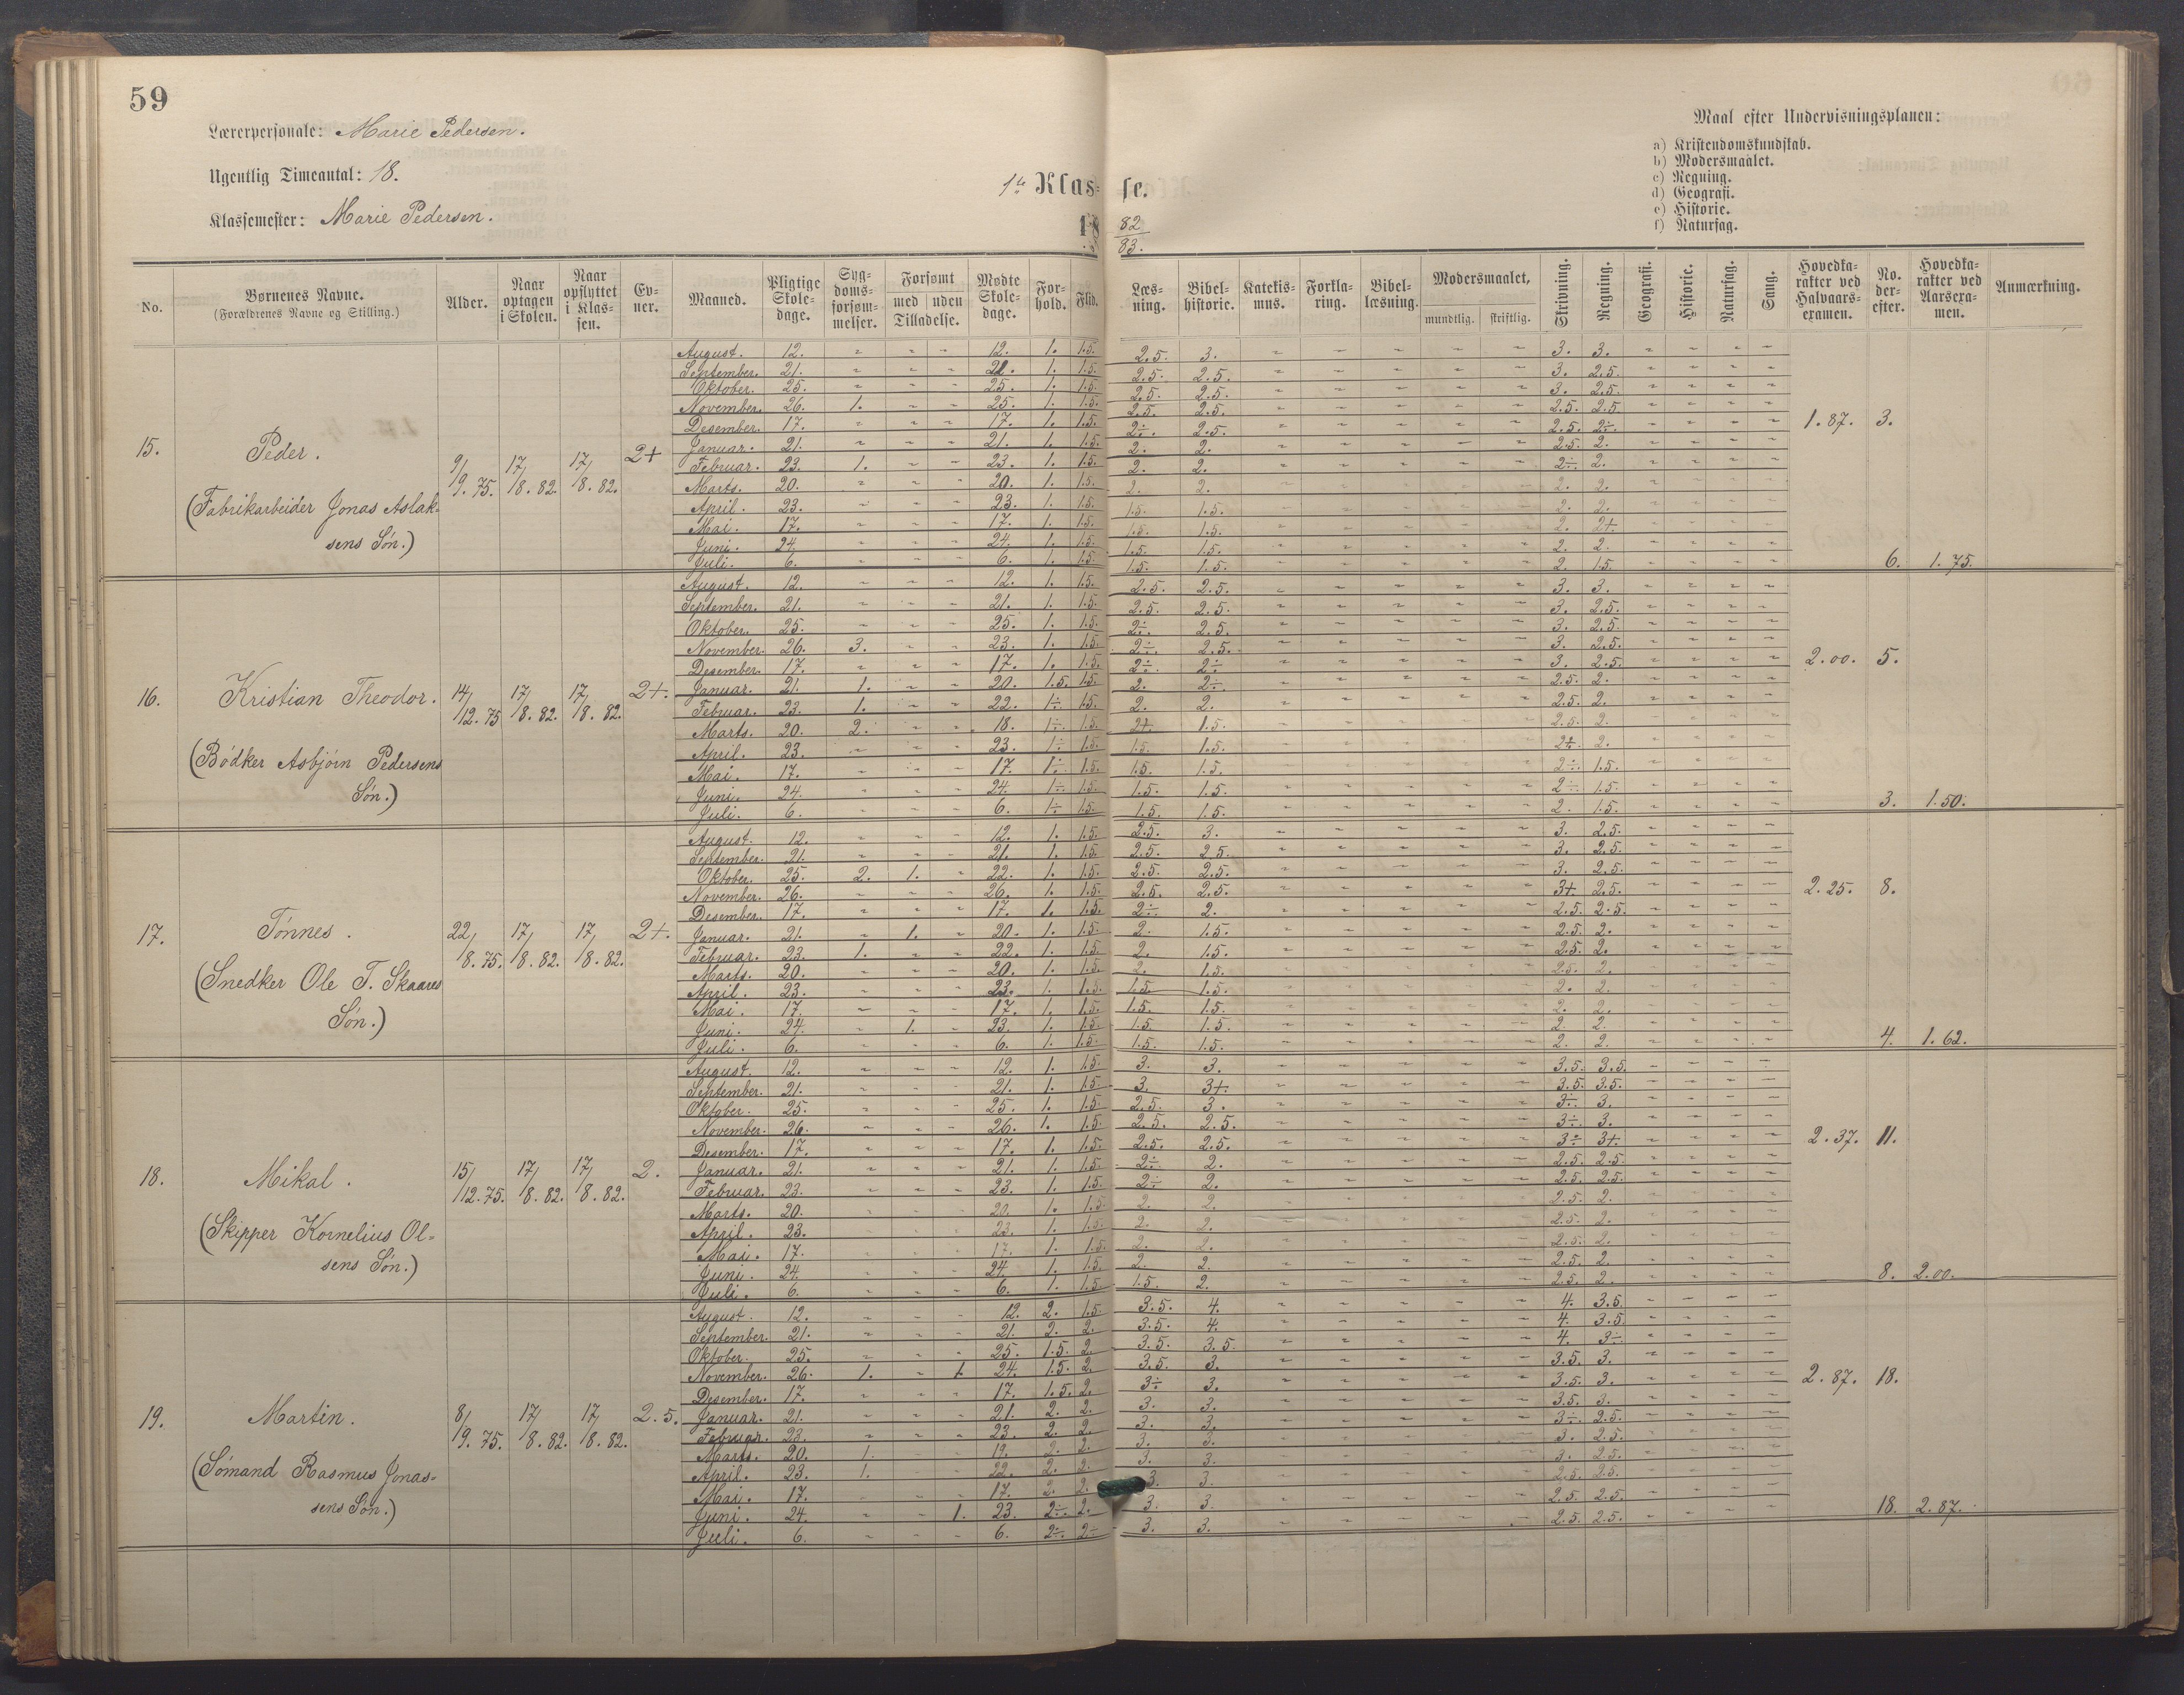 59
Lærerpersonale: Marie Pedersen.
Ugentlig Timeantal: 18.
Klassemester: Marie Pedersen.
1ste Klasse.
18 82/83.
Maal efter Undervisningsplanen:
a) Kristendomskundskab.
b) Modersmaalet.
c) Regning.
d) Geografi.
e) Historie.
f) Naturfag.
No. | Børnenes Navne. (Forældrenes Navne og Stilling.) | Alder. | Naar optagen i Skolen. | Naar opflyttet i Klassen. | Evner. | Maaned. | Pligtige Skoledage. | Sygdomsforsømmelser. | Forsømt med uden Tilladelse. | Mødte Skoledage. | Forhold. | Flid. | Læsning. | Bibelhistorie. | Katekismus. | Forklaring. | Bibellæsning. | Modersmaalet, mundtlig. skriftlig. | Skrivning. | Regning. | Geografi. | Historie. | Naturfag. | Sang. | Hovedkarakter ved Halvaarsexamen. | No. derefter. | Hovedkarakter ved Aarsexamen. | Anmærkning.
15. Peder. (Fabrikarbeider Jonas Aslaksens Søn.) 9/9. 75. 17/8. 82. 17/8. 82. 2+
August. 12. - - - 12. 1. 1.5. 2.5. 3. - - - - - 3. 3. - - - -
September. 21. - - - 21. 1. 1.5. 2.5. 2.5. - - - - - 3. 2.5. - - - -
Oktober. 25. - - - 25. 1. 1.5. 2.5. 2.5. - - - - - 3. 2.5. - - - -
November. 26. 1. - - 25. 1. 1.5. 2.5. 2.5. - - - - - 2.5. 2.5. - - - -
Desember. 17. - - - 17. 1. 1.5. 2÷. 2.5. - - - - - 2.5. 2÷. - - - - 1.87. 3.
Januar. 21. - - - 21. 1. 1.5. 2. 2. - - - - - 2.5. 2. - - - -
Februar. 23. 1. - - 23. 1. 1.5. 2. 2. - - - - - 2÷. 2. - - - -
Marts. 20. - - - 20. 1. 1.5. 2. 2. - - - - - 2. 2. - - - -
April. 23. - - - 23. 1. 1.5. 1.5. 1.5. - - - - - 2. 2. - - - -
Mai. 17. - - - 17. 1. 1.5. 1.5. 1.5. - - - - - 2. 2+. - - - -
Juni. 24. - - - 24. 1. 1.5. 1.5. 1.5. - - - - - 2. 2. - - - -
Juli. 6. - - - 6. 1. 1.5. 1.5. 1.5. - - - - - 2. 1.5. - - - - 6. 1.75.
16. Kristian Theodor. (Bödker Asbjörn Pedersens Søn.) 14/12. 75 17/8. 82. 17/8. 82. 2+.
August. 12. - - - 12. 1. 1.5. 2.5. 2.5. - - - - - 3. 3. - - - -
September. 21. - - - 21. 1. 1.5. 2.5. 2.5. - - - - - 3. 2.5. - - - -
Oktober. 25. - - - 25. 1. 1.5. 2÷. 2.5. - - - - - 3. 2.5. - - - -
November. 26. 3. - - 23. 1. 1.5. 2÷. 2.5. - - - - - 3. 2.5. - - - -
Desember. 17. - - - 17. 1. 1.5. 2÷. 2÷ - - - - - 3. 2.5. - - - - 2.00. 5.
Januar. 21. 1. - - 20. 1.5. 1.5. 2. 2÷. - - - - - 2.5. 2. - - - -
Februar. 23. 1. - - 22. 1÷. 1.5. 2. 2. - - - - - 2.5. 2. - - - -
Marts. 20. 2. - - 18. 1÷. 1.5. 2+. 1.5. - - - - - 2.5. 2. - - - -
April. 23. - - - 23. 1÷ 1.5. 1.5. 1.5. - - - - - 2÷. 2. - - - -
Mai. 17. - - - 17. 1÷. 1.5. 1.5. 1.5. - - - - - 2÷. 1.5. - - - -
Juni. 24. - - - 24. 1÷. 1.5. 1.5. 1.5. - - - - - 2÷. 1.5. - - - -
Juli. 6. - - - 6. 1÷ 1.5. 1.5. 1.5. - - - - - 2. 1.5. - - - - 3. 1.50.
17. Tönnes. (Snedker Ole T. Skaares Søn.) 22/8. 75. 17/8. 82. 17/8. 82. 2+.
August. 12. - - - 12. 1. 1.5. 2.5. 3. - - - - - 3. 2.5. - - - -
September. 21. - - - 21. 1. 1.5. 2.5. 2.5. - - - - - 3. 2.5. - - - -
Oktober. 25. 2. 1. - 22. 1. 1.5. 2.5. 2.5. - - - - - 3. 2.5. - - - -
November. 26. - - - 26. 1. 1.5. 2.5. 2.5. - - - - - 3+. 2.5. - - - - 2.25. 8.
Desember. 17. - - - 17. 1. 1.5. 2÷. 2. - - - - - 2.5. 2.5. - - - -
Januar. 21. - 1. - 20. 1. 1.5. 2. 1.5. - - - - - 2.5. 2. - - - -
Februar. 23. 1. - - 22. 1. 1.5. 2. 1.5. - - - - - 2.5. 2. - - - -
Marts. 20. - - - 20. 1. 1.5. 2. 1.5. - - - - - 2.5. 2. - - - -
April. 23. - - - 23. 1. 1.5. 1.5. 1.5. - - - - - 2. 2. - - - -
Mai. 17. - - - 17. 1. 1.5. 1.5. 1.5. - - - - - 2. 2. - - - -
Juni. 24. - 1. - 23. 1. 1.5. 1.5. 1.5. - - - - - 2. 2. - - - -
Juli. 6. - - - 6. 1. 1.5. 1.5. 1.5. - - - - - 2. 2. - - - - 4. 1.62.
18. Mikal. (Skipper Kornelius Olsens Søn.) 15/12. 75. 17/8. 82. 17/8. 82. 2.
August. 12. - - - 12. 1. 1.5 3. 3. - - - - - 3.5. 3.5. - - - -
September. 21. - - - 21. 1. 1.5 3. 3+. - - - - - 3.5. 3.5. - - - -
Oktober. 25. - - - 25. 1. 1.5 2.5. 3. - - - - - 3÷. 3. - - - -
November. 26. - - - 26. 1. 1.5 2.5. 2.5. - - - - - 3÷. 3. - - - -
Desember. 17. - - - 17. 1. 1.5. 2.5. 2.5. - - - - - 3÷ 3+. - - - - 2.37. 11.
Januar. 21. - - - 21. 1. 1.5. 2÷. 2. - - - - - 2.5. 2.5. - - - -
Februar. 23. - - - 23. 1. 1.5. 2÷ 2. - - - - - 2.5. 2.5. - - - -
Marts. 20. - - - 20. 1. 1.5. 2. 2. - - - - - 2.5. 2. - - - -
April. 23. - - - 23. 1. 1.5. 2. 2. - - - - - 2.5. 2. - - - -
Mai. 17. - - - 17. 1. 1.5. 2. 2. - - - - - 2.5. 2. - - - -
Juni. 24. - - - 24. 1. 1.5. 2. 2. - - - - - 2.5. 2. - - - -
Juli. 6. - - - 6. 1. 1.5. 1.5. 2. - - - - - 2.5. 2. - - - - 8. 2.00.
19. Martin. (Sömand Rasmus Jonassens Søn.) 8/9. 75. 17/8. 82. 17/8. 82. 2.5.
August. 12. - - - 12. 2. 1.5. 3.5. 4. - - - - - 4. 3.5. - - - -
September. 21. - - - 21. 2. 2. 3.5. 4. - - - - - 4. 3.5. - - - -
Oktober. 25. - - - 25. 1.5. 2. 3.5. 3.5. - - - - - 4. 3÷. - - - -
November. 26. 1. - 1. 24. 1.5. 2. 3.5. 3. - - - - - 3.5. 3. - - - -
Desember. 17. - - - 17. 1.5. 2. 3÷. 3. - - - - - 3.5. 3. - - - - 2.87. 18.
Januar. 21. - - - 21. 2. 2. 3. 3. - - - - - 3.5. 3. - - - -
Februar. 23. - - - 23. 2. 2. 3. 3. - - - - - 3÷. 2.5. - - - -
Marts. 20. 1. - - 19. 2. 2. 3. 3. - - - - - 3. 2.5. - - - -
April. 23. 1. - - 22. 2. 2. 3. 3. - - - - - 3. 2.5. - - - -
Mai. 17. - - - 17. 2. 2. 3. 3. - - - - - 2.5. 2.5. - - - -
Juni. 24. - - 1. 23. 2÷. 2. 3. 3. - - - - - 2.5. 2.5. - - - -
Juli. 6. - - - 6. 2÷. 2÷ 3. 3. - - - - - 2.5. 2.5. - - - - 18. 2.87.